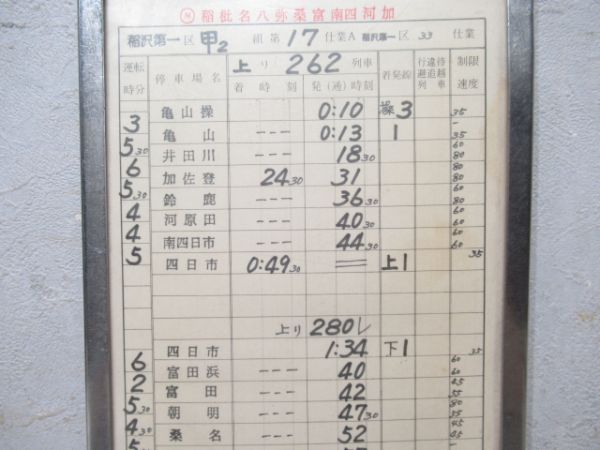 Ⓜ 稲枇名八弥桑富南四河加
稲沢第一区 甲2 組第17仕業A 稲沢第一区33仕業
運転時分 停車場名 上り262列車 着発線 行違待避追越列車 制限速度
着時刻 発(通)時刻
3 亀山操 0:10 操3 35
5 30 亀山 --- 0:13 1 35
6 井田川 --- 18 30
5 30 加佐登 24 30 31
4 鈴鹿 --- 36 30
4 河原田 --- 40 30
5 南四日市 --- 44 30
四日市 0:49 30 == 上1 35
上り 280レ
四日市 1:34 下1 35
6 富田浜 --- 40
2 富田 --- 42
5 30 朝明 --- 47 30
4 30 桑名 --- 52